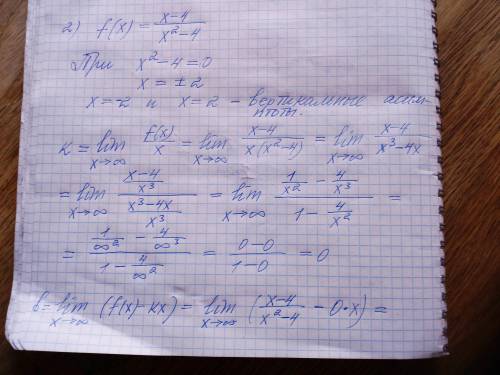 2) f(x) = (x-4)/(x²-4)
При x²-4=0
x = ±2
x=-2 и x=2 - вертикальные асимптоты.
k = lim x→∞ f(x)/x = lim x→∞ (x-4)/(x(x²-4)) = lim x→∞ (x-4)/(x³-4x)
= lim x→∞ ((x-4)/x³)/((x³-4x)/x³) = lim x→∞ (1/x² - 4/x³)/(1 - 4/x²) =
= (1/∞² - 4/∞³)/(1 - 4/∞²) = (0-0)/(1-0) = 0
b = lim x→∞ (f(x)-kx) = lim x→∞ ((x-4)/(x²-4) - 0•x) =